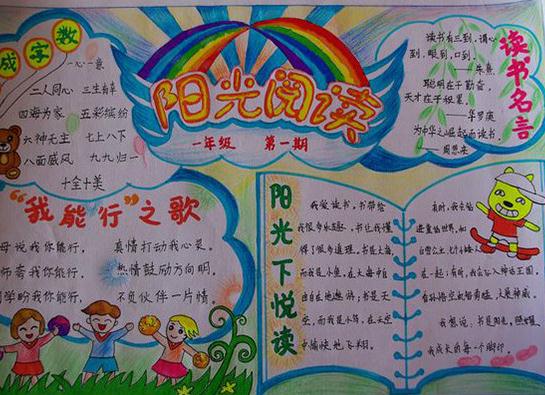 阳光阅读
一年级 第一期
成字数
一心一意
二人同心 三生有幸
四海为家 五彩缤纷
六神无主 七上八下
八面威风 九九归一
十全十美
读书名言
读书有三到，谓心
到，眼到，口到。
——朱熹
聪明在于勤奋，
天才在于积累。
——华罗庚
为中华之崛起而读书。
——周恩来
“我能行”之歌
母说我你能行， 真情打动我心灵。
师夸我你能行， 热情鼓励方向明。
同学盼我你能行， 不负伙伴一片情。
阳光下悦读
我爱读书，书带给
我很多乐趣，书也让我懂
得了很多道理。书是大海，
而我是小鱼，在大海中自
由自在地遨游；书是天
空，而我是小鸟，在天空
中愉快地飞翔。
有时，我走
进童话世界，和
白雪公主、七个小矮人
在一起；有时，我会飞入神话王国，
和孙悟空 大展神威。
我想说：书是阳光，照耀
我成长的每一个脚印。